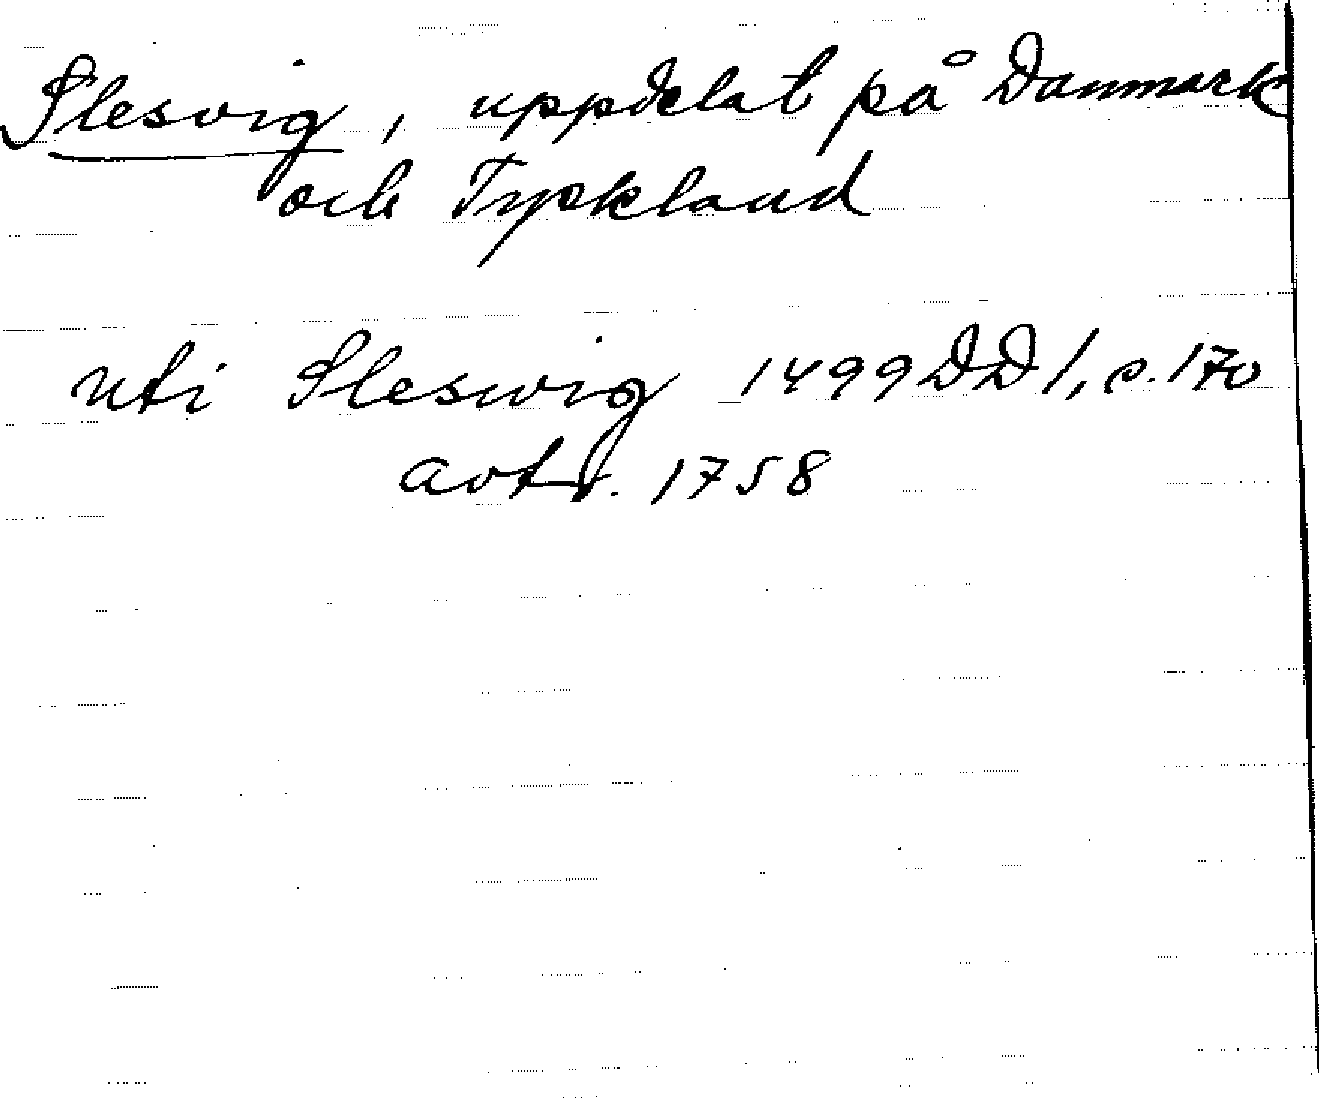 Slesvig, uppdelat på Danmark
och Tyskland
uti Sleswig 1499 DD 1, s. 170
avtr. 1758